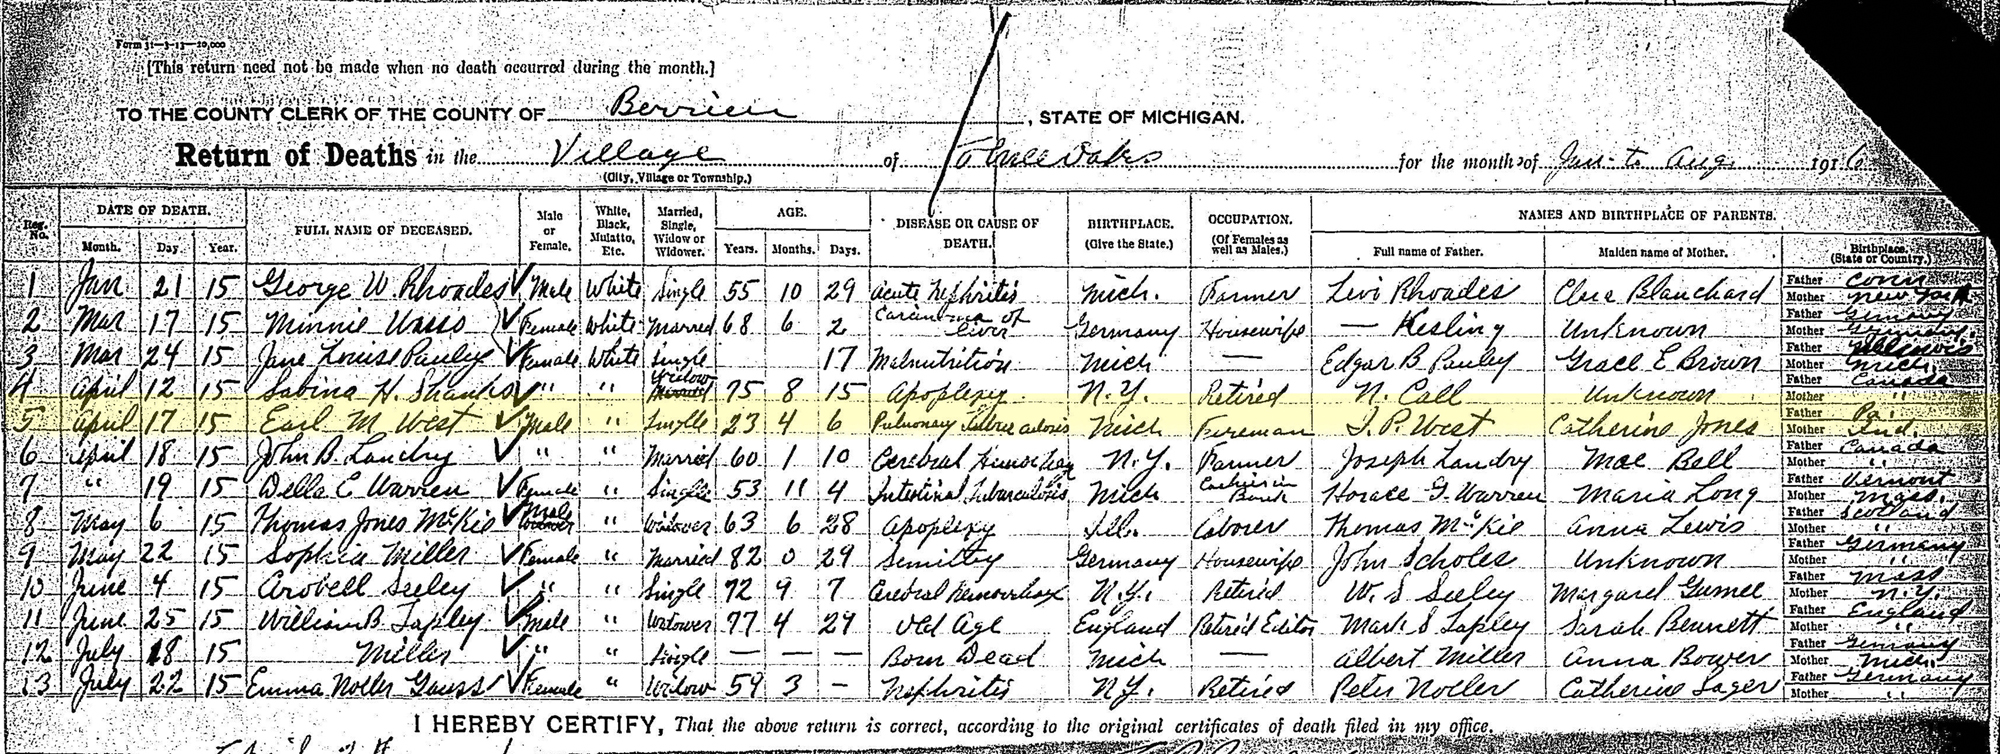 Form 31—3-13—20,000
[This return need not be made when no death occurred during the month.]
TO THE COUNTY CLERK OF THE COUNTY OF Berrien, STATE OF MICHIGAN.
Return of Deaths in the Village of Three Oaks for the month of Jan. to Aug. 1916
(City, Village or Township.)
Reg. No. DATE OF DEATH. Month. Day. Year. FULL NAME OF DECEASED. Male or Female. White, Black, Mulatto, Etc. Married, Single, Widow or Widower. AGE. Years. Months. Days. DISEASE OR CAUSE OF DEATH. BIRTHPLACE. (Give the State.) OCCUPATION. (Of Females as well as Males.) NAMES AND BIRTHPLACE OF PARENTS. Full name of Father. Maiden name of Mother. Birthplace. (State or Country.)
1 Jan 21 15 George W. Rhoades Male White Single 55 10 29 Acute Nephritis Mich. Farmer Levi Rhoades Clara Blanchard Father Conn Mother New York
2 Mar 17 15 Minnie Female White Married 68 6 2 Carcinoma of liver Germany Housewife — Kesling Unknown Father Germany Mother Germany
3 Mar 24 15 Jane Louise Pauley Female White Single 17 Malnutrition Mich — Edgar B Pauley Grace E Brown Father Illinois Mother Mich.
4 April 12 15 Sabina H. Shanks " " Widow 75 8 15 Apoplexy N.Y. Retired N. Call Unknown Father Canada Mother "
5 April 17 15 Earl M West Male " Single 23 4 6 Pulmonary Tuberculosis Mich Fireman J. P. West Catherine Jones Father Pa. Mother Ind.
6 April 18 15 John B. Landry " " Married 60 1 10 Cerebral N.Y. Farmer Joseph Landry Mae Bell Father Canada Mother "
7 " 19 15 Della E Warren Female " Single 53 11 4 Intestinal Tuberculosis Mich Cashier in Bank Horace G. Warren Maria Long Father Vermont Mother Mass.
8 May 6 15 Thomas Jones McKie Male " Widower 63 6 28 Apoplexy Ill. Laborer Thomas McKie Anna Lewis Father Scotland Mother "
9 May 22 15 Sophia Miller Female " Married 82 0 29 Senility Germany Housewife John Scholes Unknown Father Germany Mother "
10 June 4 15 Arobell Seeley " " Single 72 9 7 Cerebral Hemorrhage N.Y. Retired W. S Seeley Margaret Father Mass Mother N.Y.
11 June 25 15 William B. Tapley Male " Widower 77 4 29 Old Age England Retired Editor Mark S Tapley Sarah Bennett Father England Mother "
12 July 18 15 Miller " " Single — — — Born Dead Mich — Albert Miller Anna Bower Father Germany Mother Mich.
13 July 22 15 Emma Noller Gauss Female " Widow 59 3 - Nephritis N.Y. Retired Peter Noller Catherine Sager Father Germany Mother "
I HEREBY CERTIFY, That the above return is correct, according to the original certificates of death filed in my office.